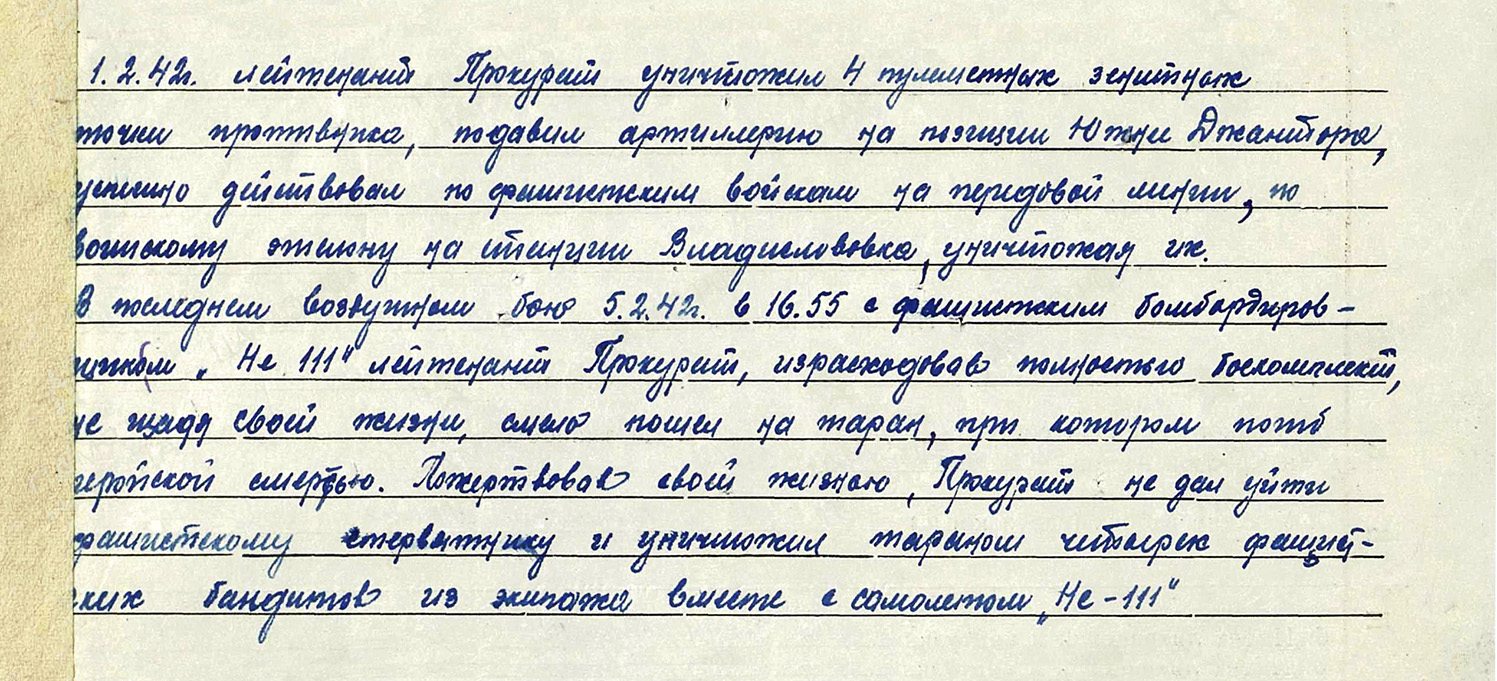 1.2.42г. лейтенант Прокурат уничтожил 4 пулеметных зенитных
точки противника, подавил артиллерию на позиции Южнее Джантора,
успешно действовал по фашистским войскам на передовой линии, по
воинскому эшелону на станции Владиславовка, уничтожая их.
В последнем воздушном бою 5.2.42г. в 16.55 с фашистским бомбардиров-
щиком „Не 111" лейтенант Прокурат, израсходовав полностью боекомплект,
не щадя своей жизни, смело пошел на таран, при котором погиб
геройской смертью. Пожертвовав своей жизнью, Прокурат не дал уйти
фашистскому стервятнику и уничтожил тараном четырех фашист-
ских бандитов из экипажа вместе с самолетом „Не-111"